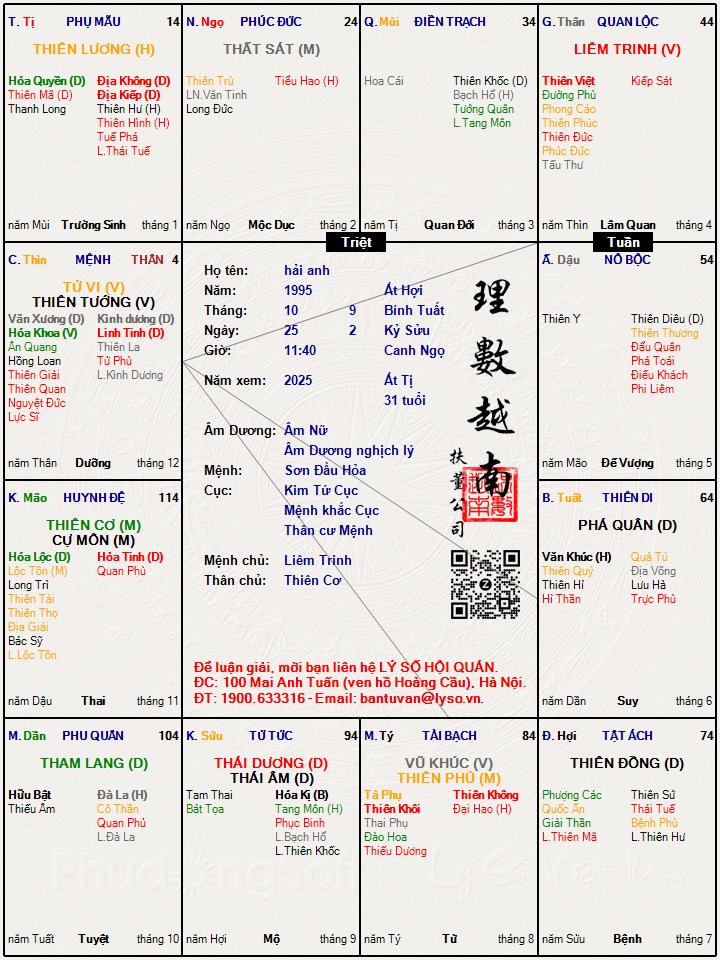 T. Tị PHỤ MẪU 14
THIÊN LƯƠNG (H)
Hóa Quyền (D) Địa Không (D)
Thiên Mã (D) Địa Kiếp (D)
Thanh Long Thiên Hư (H)
Thiên Hình (H)
Tuế Phá
L.Thái Tuế
năm Mùi Trường Sinh tháng 1
N. Ngọ PHÚC ĐỨC 24
THẤT SÁT (M)
Thiên Trù Tiểu Hao (H)
LN.Văn Tinh
Long Đức
năm Ngọ Mộc Dục tháng 2
Q. Mùi ĐIỀN TRẠCH 34
Hoa Cái Thiên Khốc (D)
Bạch Hổ (H)
Tướng Quân
L.Tang Môn
năm Tị Quan Đới tháng 3
G. Thân QUAN LỘC 44
LIÊM TRINH (V)
Thiên Việt Kiếp Sát
Đường Phù
Phong Cáo
Thiên Phúc
Thiên Đức
Phúc Đức
Tấu Thư
năm Thìn Lâm Quan tháng 4
Triệt
Tuần
C. Thìn MỆNH THÂN 4
TỬ VI (V)
THIÊN TƯỚNG (V)
Văn Xương (D) Kình dương (D)
Hóa Khoa (V) Linh Tinh (D)
Ân Quang Thiên La
Hồng Loan Tử Phù
Thiên Giải L.Kình Dương
Thiên Quan
Nguyệt Đức
Lực Sĩ
năm Thân Dưỡng tháng 12
Họ tên: hải anh
Năm: 1995 Ất Hợi
Tháng: 10 9 Bính Tuất
Ngày: 25 2 Kỷ Sửu
Giờ: 11:40 Canh Ngọ
Năm xem: 2025 Ất Tị
31 tuổi
Âm Dương: Âm Nữ
Âm Dương nghịch lý
Mệnh: Sơn Đầu Hỏa
Cục: Kim Tứ Cục
Mệnh khắc Cục
Thân cư Mệnh
Mệnh chủ: Liêm Trinh
Thân chủ: Thiên Cơ
理數越南
扶董公司
Để luận giải, mời bạn liên hệ LÝ SỐ HỘI QUÁN.
ĐC: 100 Mai Anh Tuấn (ven hồ Hoàng Cầu), Hà Nội.
ĐT: 1900.633316 - Email: bantuvan@lyso.vn.
Ấ. Dậu NÔ BỘC 54
Thiên Y Thiên Diêu (D)
Thiên Thương
Đẩu Quân
Phá Toái
Điếu Khách
Phi Liêm
năm Mão Đế Vượng tháng 5
K. Mão HUYNH ĐỆ 114
THIÊN CƠ (M)
CỰ MÔN (M)
Hóa Lộc (D) Hỏa Tinh (D)
Lộc Tồn (M) Quan Phù
Long Trì
Thiên Tài
Thiên Thọ
Địa Giải
Bác Sỹ
L.Lộc Tồn
năm Dậu Thai tháng 11
B. Tuất THIÊN DI 64
PHÁ QUÂN (D)
Văn Khúc (H) Quả Tú
Thiên Quý Địa Võng
Thiên Hỉ Lưu Hà
Hỉ Thần Trực Phù
năm Dần Suy tháng 6
M. Dần PHU QUÂN 104
THAM LANG (D)
Hữu Bật Đà La (H)
Thiếu Âm Cô Thần
Quan Phủ
L.Đà La
năm Tuất Tuyệt tháng 10
K. Sửu TỬ TỨC 94
THÁI DƯƠNG (D)
THÁI ÂM (D)
Tam Thai Hóa Kị (B)
Bát Tọa Tang Môn (H)
Phục Binh
L.Bạch Hổ
L.Thiên Khốc
năm Hợi Mộ tháng 9
M. Tý TÀI BẠCH 84
VŨ KHÚC (V)
THIÊN PHỦ (M)
Tả Phụ Thiên Không
Thiên Khôi Đại Hao (H)
Thai Phụ
Đào Hoa
Thiếu Dương
năm Tý Tử tháng 8
Đ. Hợi TẬT ÁCH 74
THIÊN ĐỒNG (D)
Phượng Các Thiên Sứ
Quốc Ấn Thái Tuế
Giải Thần Bệnh Phù
L.Thiên Mã L.Thiên Hư
năm Sửu Bệnh tháng 7